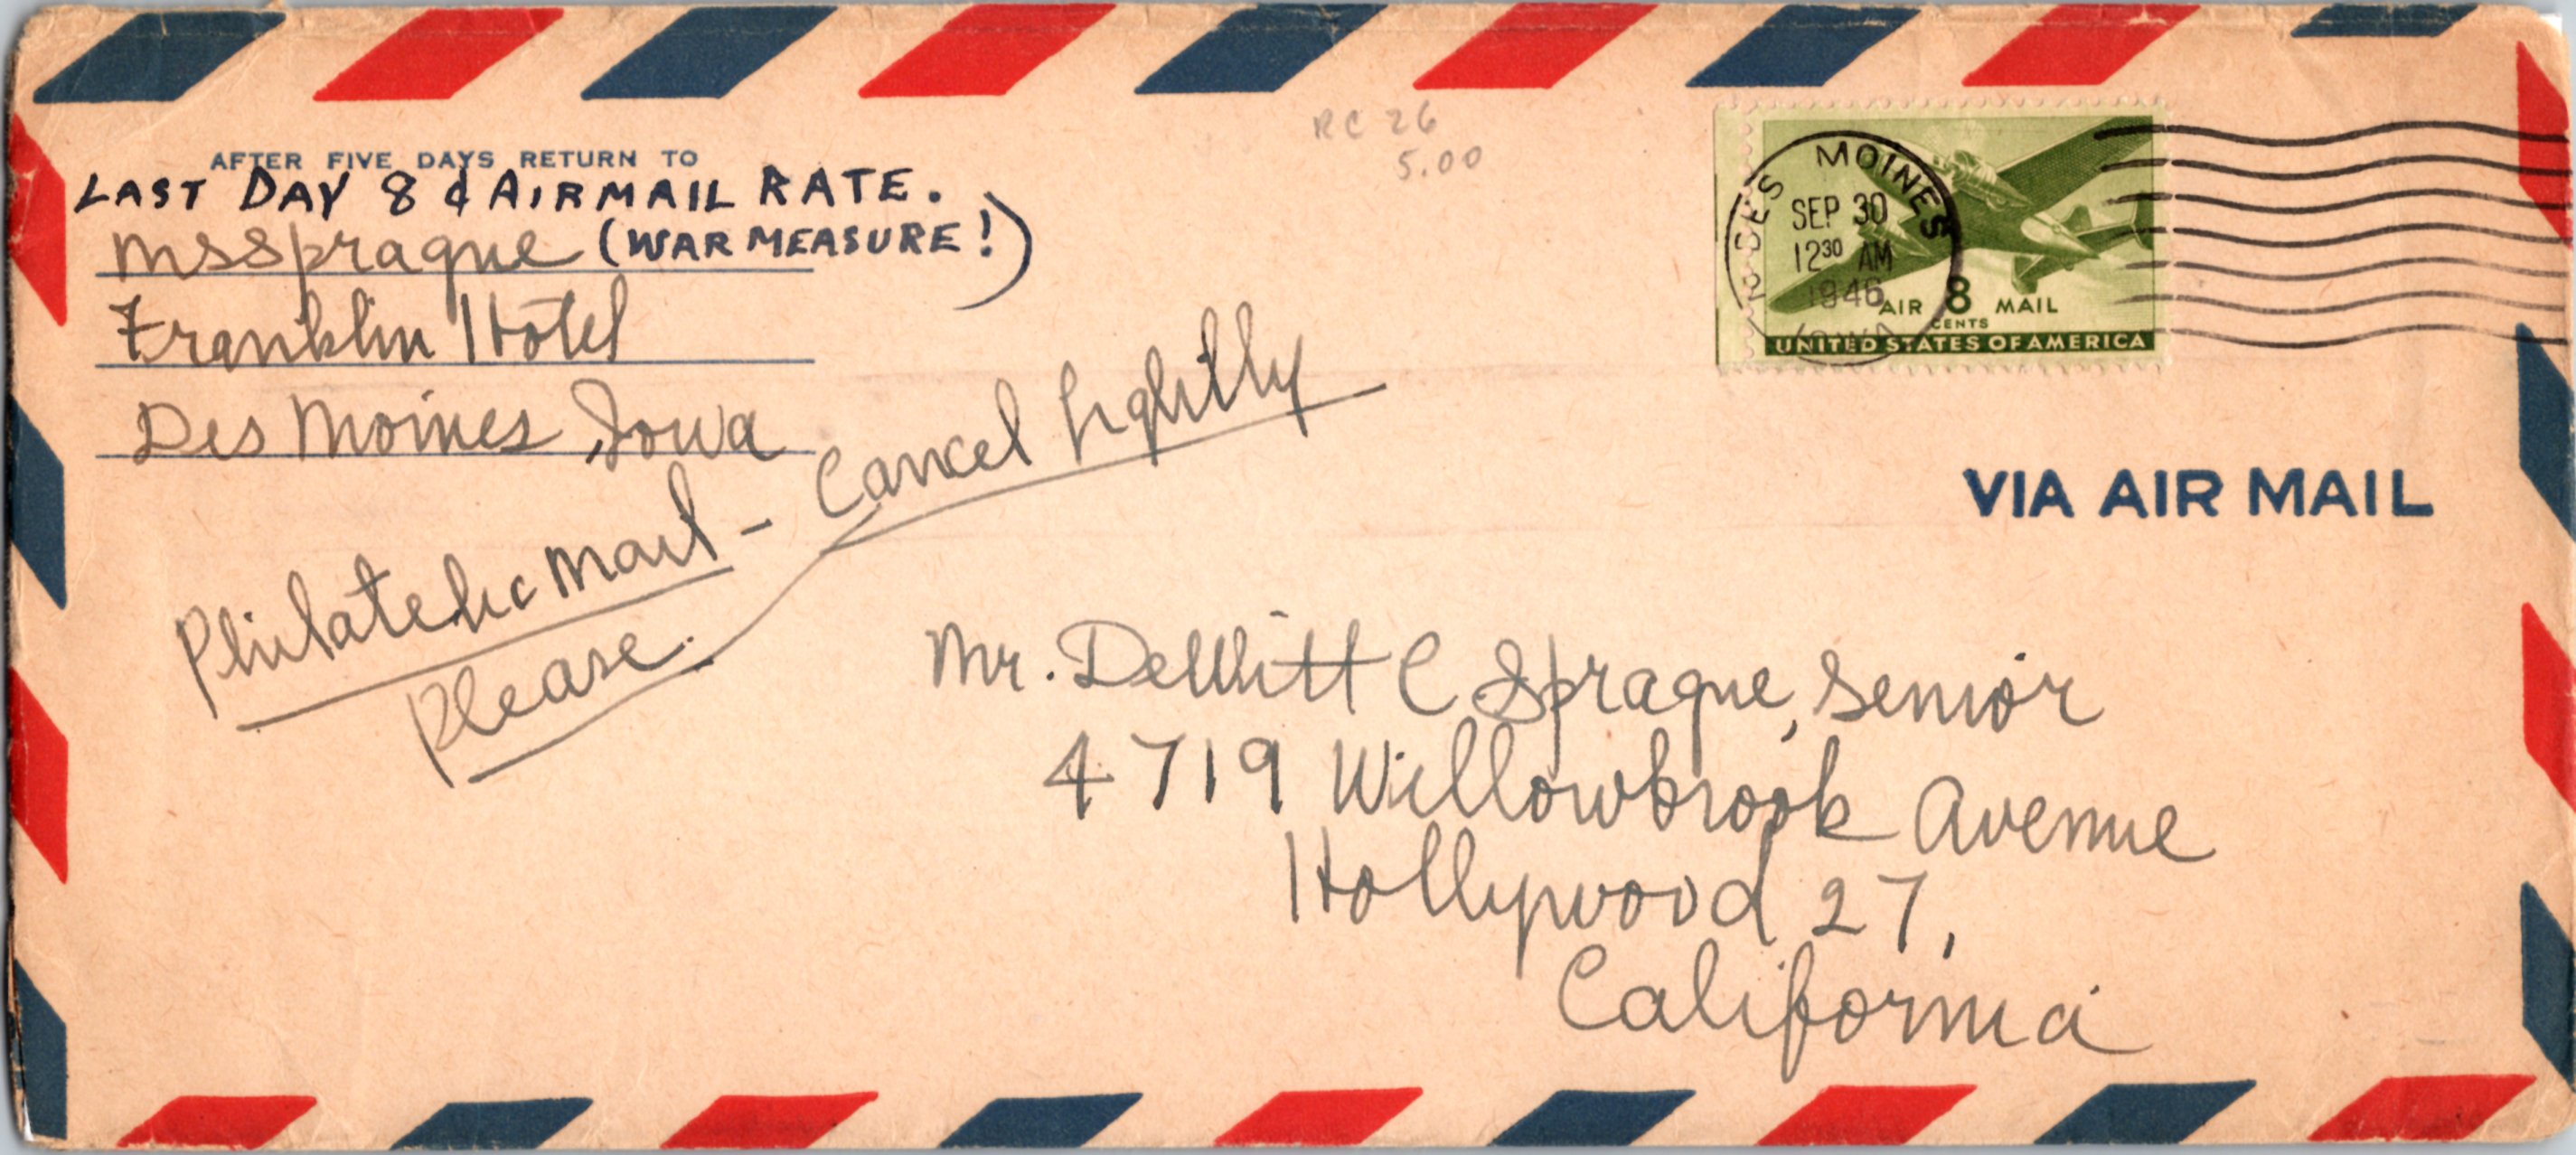 AFTER FIVE DAYS RETURN TO
LAST DAY 8¢ AIRMAIL RATE.
(WAR MEASURE!)
MSSprague
Franklin Hotel
Des Moines, Iowa
RC 26
5.00
DES MOINES
SEP 30
12 30 AM
1946
IOWA
AIR 8 MAIL
CENTS
UNITED STATES OF AMERICA
VIA AIR MAIL
Philatelic Mail - Cancel lightly
Please.
Mr. DeWitt C Sprague, Senior
4719 Willowbrook Avenue
Hollywood 27,
California